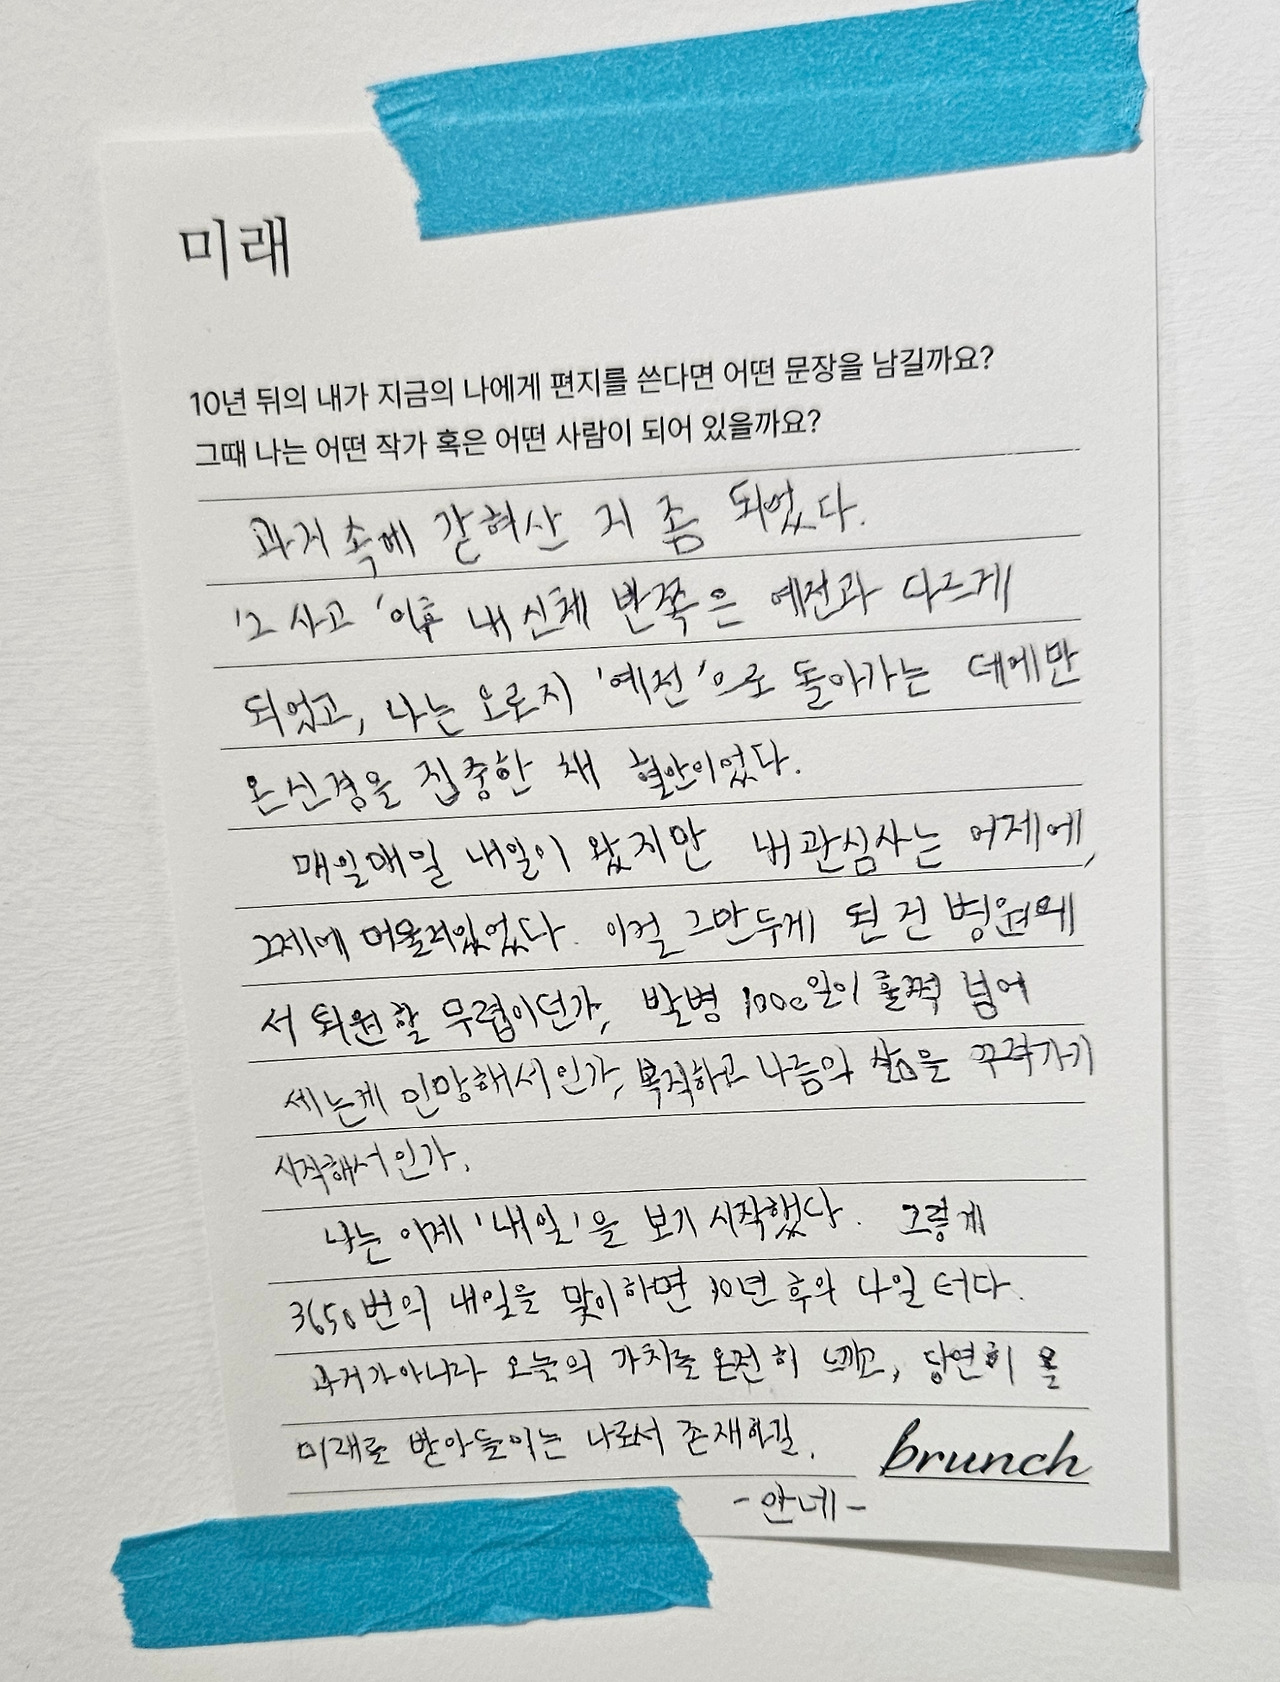 미래
10년 뒤의 내가 지금의 나에게 편지를 쓴다면 어떤 문장을 남길까요?
그때 나는 어떤 작가 혹은 어떤 사람이 되어 있을까요?
과거 속에 갇혀산 지 좀 되었다.
'그 사고' 이후 내 신체 반쪽은 예전과 다르게
되었고, 나는 오로지 '예전'으로 돌아가는 데에만
온신경을 집중한 채 혈안이었다.
매일매일 내일이 왔지만 내 관심사는 어제에,
그제에 머물러있었다. 이걸 그만두게 된 건 병원에
서 퇴원할 무렵이던가, 발병 1000일이 훌쩍 넘어
세는게 민망해서인가, 복직하고 나름의 삶을 꾸려가기
시작해서인가.
나는 이제 '내일'을 보기 시작했다. 그렇게
3650번의 내일을 맞이하면 10년 후의 나일 터다.
과거가아니라 오늘의 가치를 온전히 느끼고, 당연히 올
미래를 받아들이는 나로서 존재하길.
brunch
-안네-